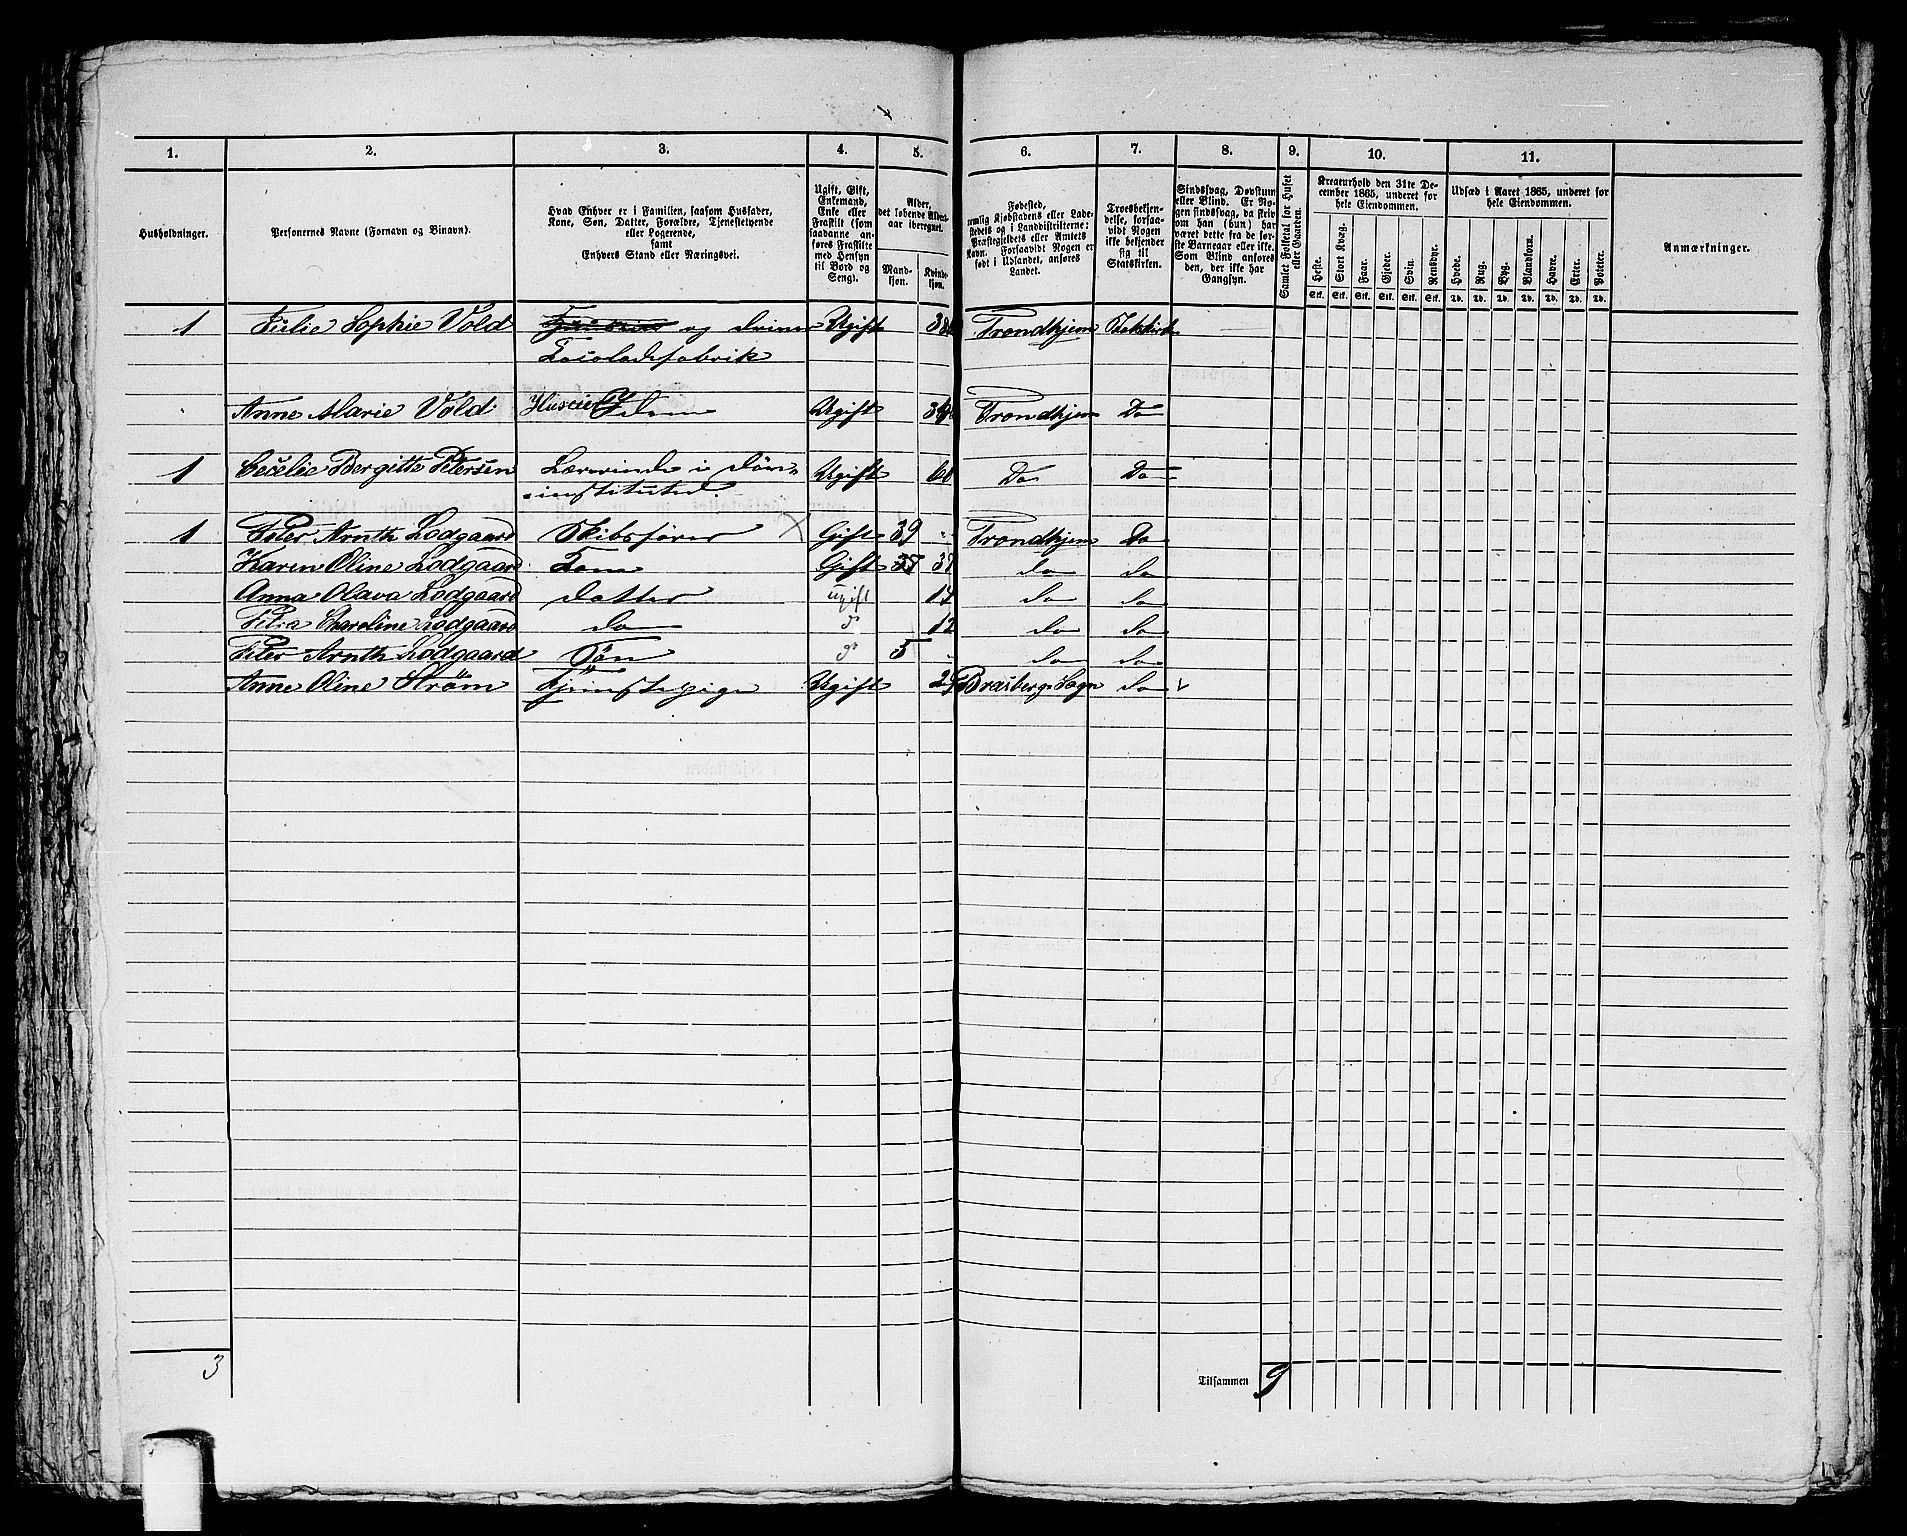 1. 2. 3. 4. 5. 6. 7. 8. 9. 10. 11.
Husholdninger.
Personernes Navne (Fornavn og Binavn).
Hvad Enhver er i Familien, saasom Husfader,
Kone, Søn, Datter, Forældre, Tjenestetyende
eller Logerende,
samt
Enhvers Stand eller Næringsvei.
Ugift, Gift,
Enkemand,
Enke eller
Fraskilt (som
saadanne an-
føres Fraskilte
med Hensyn
til Bord og
Seng).
Alder,
det løbende Alders-
aar iberegnet.
Mand-
kjøn.
Kvinde-
kjøn.
Fødested,
nemlig Kjøbstadens eller Lade-
stedets og i Landdistrikterne:
Præstegjeldets eller Amtets
Navn. Forsaavidt Nogen er
født i Udlandet, anføres
Landet.
Troesbekjen-
delse, forsaa-
vidt Nogen
ikke bekjender
sig til
Statskirken.
Sindssvag, Døvstum
eller Blind. Er No-
gen sindssvag, da skriv
om han (hun) har
været dette fra de før-
ste Barneaar eller ikke.
Som Blind anføres
den, der ikke har
Gangsyn.
Samlet Folketal for Huset
eller Gaarden.
Kreaturhold den 31te De-
cember 1865, underet for
hele Eiendommen.
Heste. Stort Kvæg. Faar. Gjeder. Svin. Rensdyr.
Stk. Stk. Stk. Stk. Stk. Stk.
Udsæd i Aaret 1865, underet for
hele Eiendommen.
Hvede. Rug. Byg. Blandkorn. Havre. Erter. Poteter.
Td. Td. Td. Td. Td. Td. Td.
Anmærkninger.
1 Julie Sophie Vold og driver Ugift Trondhjem
Socoladefabrik
Anne Marie Vold Idem Ugift Trondhjem Do
1 Cecelie Bergitte Petersen Lærerinde i Døv= Ugift Do Do
=institutet.
1 Peter Arnth Lodgaard Skibsfører Gift 39 Trondhjem Do
Karen Oline Lodgaard Kone Gift 38 do do
Anna Olava Lodgaard datter ugift do do
Petra Charoline Lodgaard do do 12 do do
Peter Arnth Lodgaard Søn do 5 do do
Anne Oline Strøm Tjenstepige Ugift do
3
Tilsammen 9